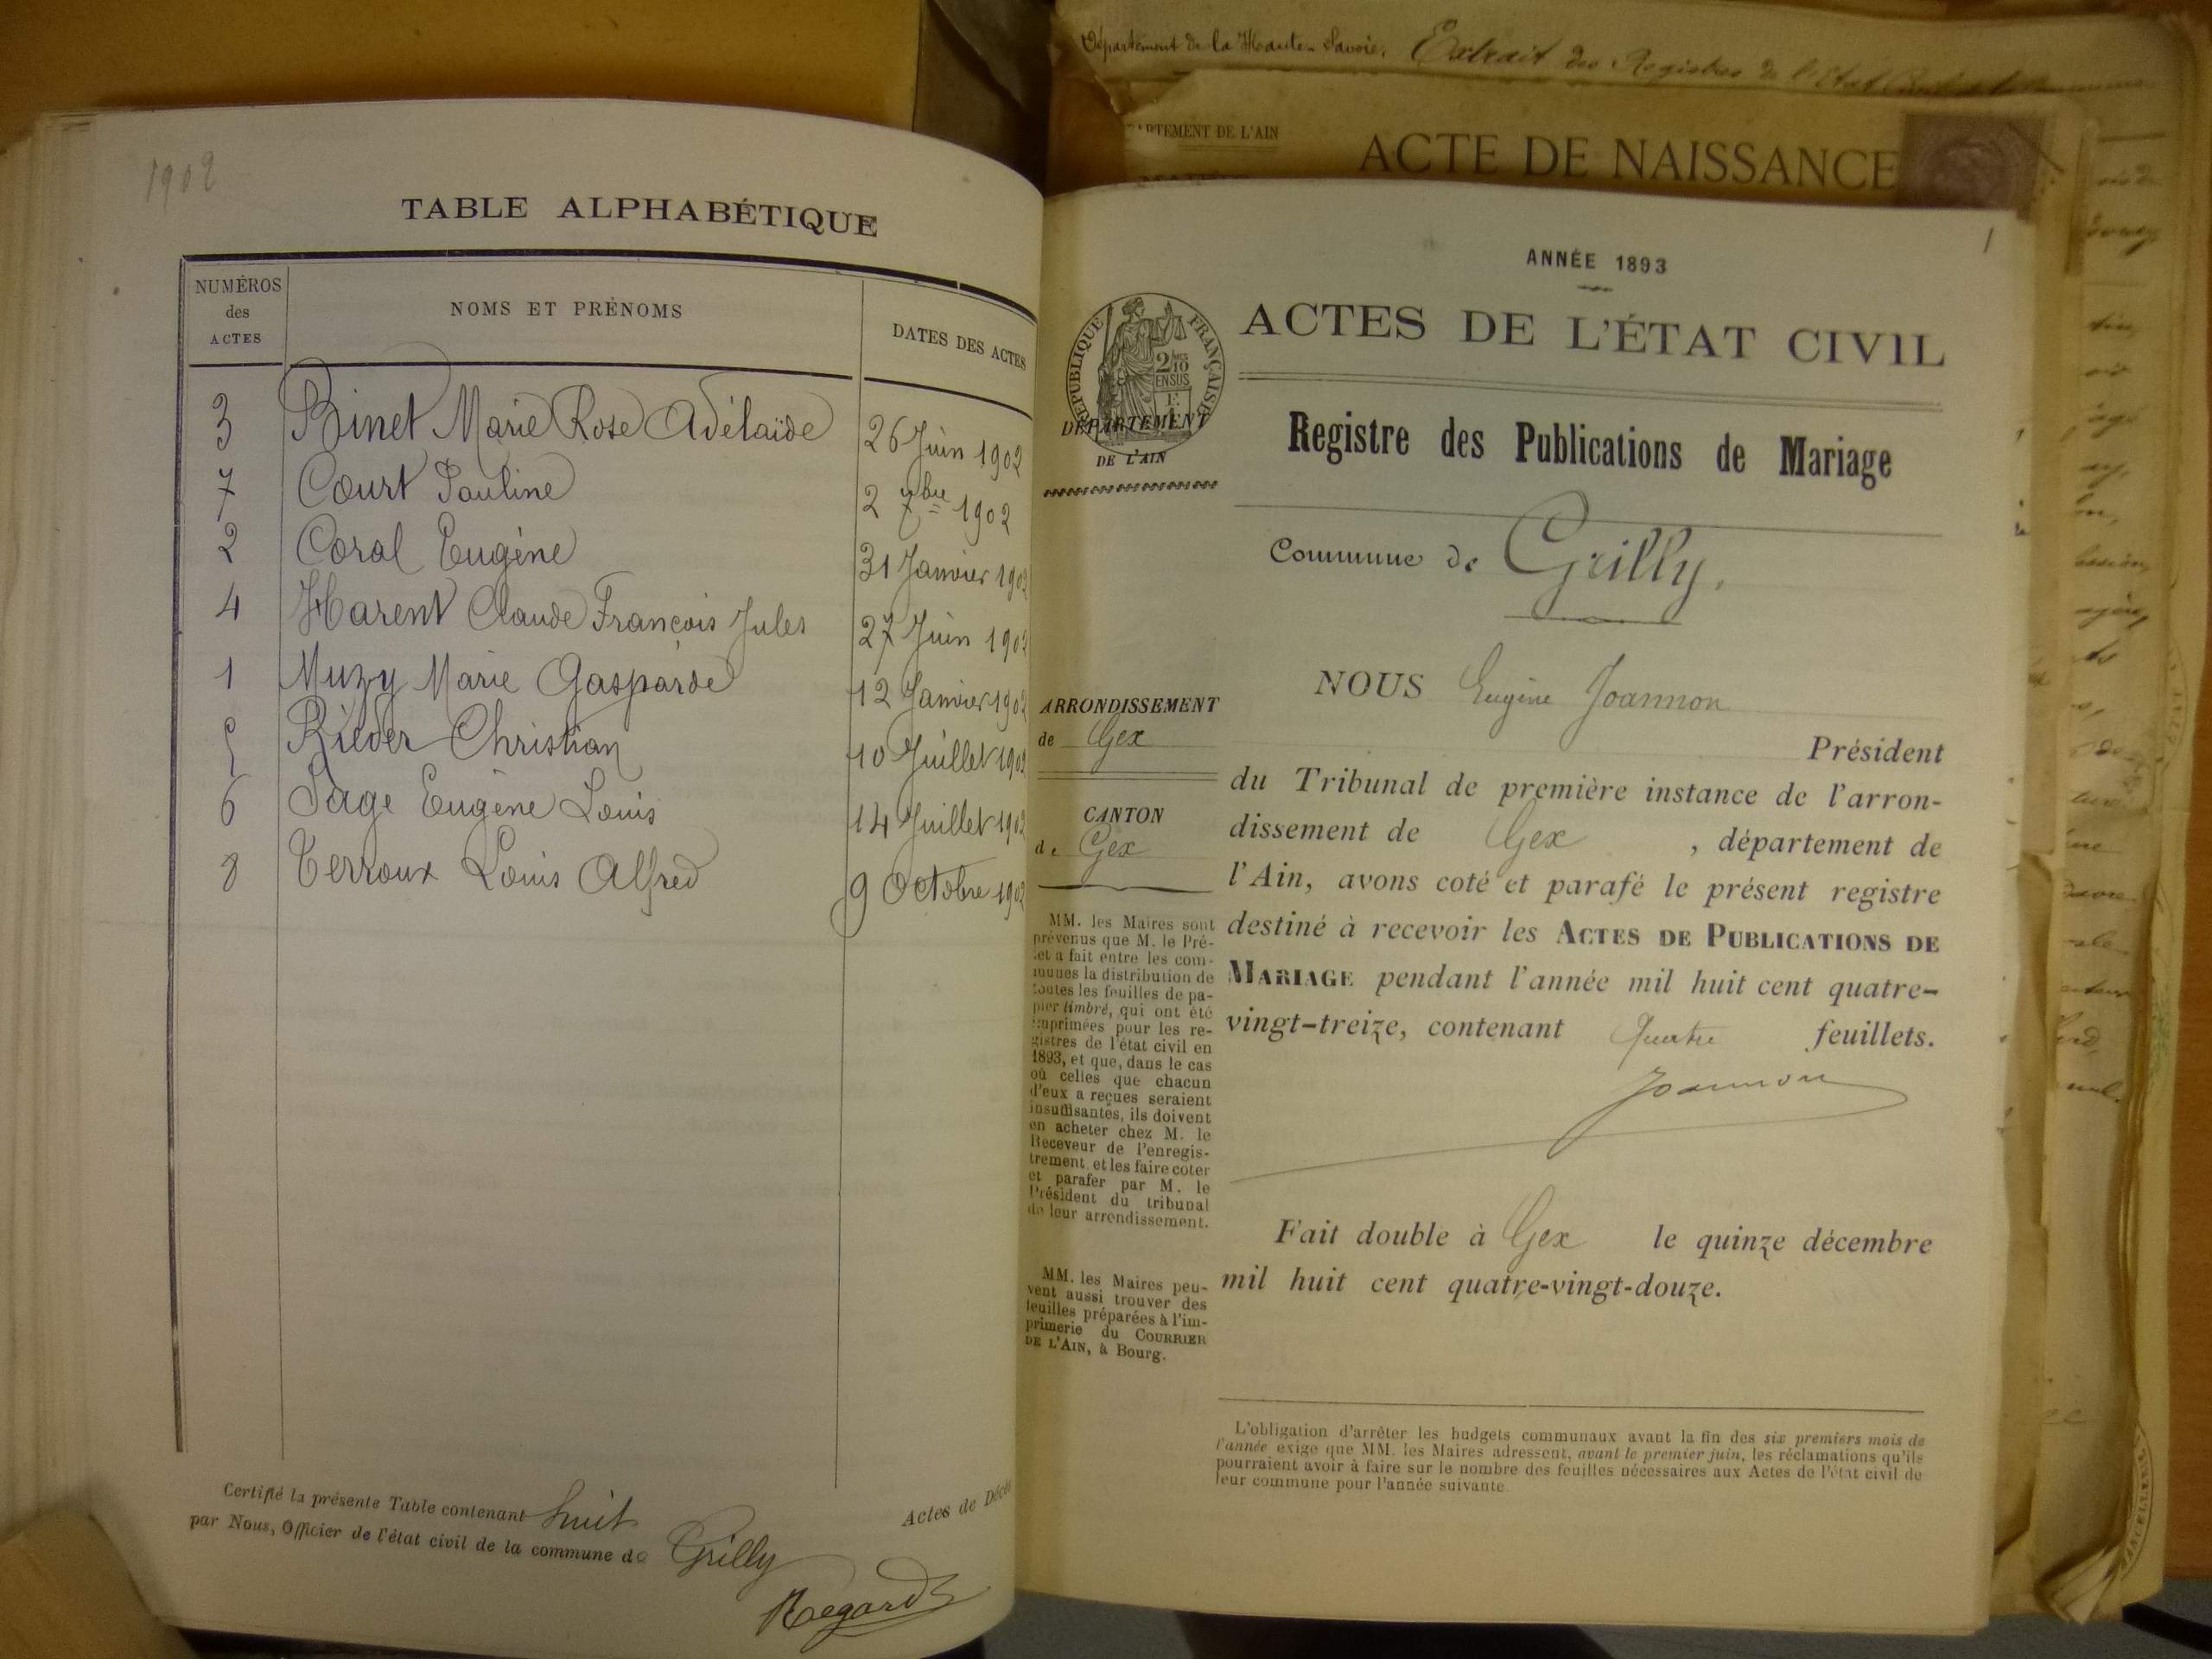 1902
TABLE ALPHABÉTIQUE
NUMÉROS
des
ACTES
NOMS ET PRÉNOMS
DATES DES ACTES
3 Binet Marie Rose Adélaïde 26 Juin 1902
7 Court Pauline 2 7bre 1902
2 Coral Eugène 31 Janvier 1902
4 Harent Claude François Jules 27 Juin 1902
1 Muzy Marie Gasparde 12 Janvier 1902
5 Rieder Christian 10 Juillet 1902
6 Sage Eugène Louis 14 Juillet 1902
8 Terroux Louis Alfred 9 Octobre 1902
Certifié la présente Table contenant huit Actes de Décès
par Nous, Officier de l'état civil de la commune de Grilly
Regard
Département de la Haute-Savoie. Extrait des Registres de l'Etat Civil de la
DEPARTEMENT DE L'AIN
ACTE DE NAISSANCE
1
ANNÉE 1893
ACTES DE L'ÉTAT CIVIL
RÉPUBLIQUE FRANÇAISE
2/10
EN SUS
DÉPARTEMENT
DE L'AIN
Registre des Publications de Mariage
Commune de Grilly.
NOUS Eugène Joannon
Président
du Tribunal de première instance de l'arron-
dissement de Gex , département de
l'Ain, avons coté et parafé le présent registre
destiné à recevoir les ACTES DE PUBLICATIONS DE
MARIAGE pendant l'année mil huit cent quatre-
vingt-treize, contenant Quatre feuillets.
Joannon
Fait double à Gex le quinze décembre
mil huit cent quatre-vingt-douze.
ARRONDISSEMENT
de Gex
CANTON
de Gex
MM. les Maires sont
prévenus que M. le Pré-
fet a fait entre les com-
munes la distribution de
toutes les feuilles de pa-
pier timbré, qui ont été
imprimées pour les re-
gistres de l'état civil en
1893, et que, dans le cas
où celles que chacun
d'eux a reçues seraient
insuffisantes, ils doivent
en acheter chez M. le
Receveur de l'enregis-
trement et les faire coter
et parafer par M. le
Président du tribunal
de leur arrondissement.
MM. les Maires peu-
vent aussi trouver des
feuilles préparées à l'im-
primerie du COURRIER
DE L'AIN, à Bourg.
L'obligation d'arrêter les budgets communaux avant la fin des six premiers mois de
l'année exige que MM. les Maires adressent, avant le premier juin, les réclamations qu'ils
pourraient avoir à faire sur le nombre des feuilles nécessaires aux Actes de l'état civil de
leur commune pour l'année suivante.